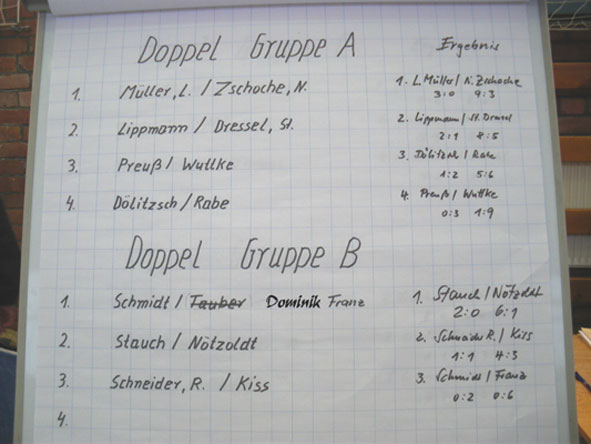 Doppel Gruppe A
1. Müller, L. / Zschoche, N.
2. Lippmann / Dressel, St.
3. Preuß / Wuttke
4. Dölitzsch / Rabe
Ergebnis
1. L. Müller / N. Zschoche
3:0 9:3
2. Lippmann / St. Dressel
2:1 8:5
3. Dölitzsch / Rabe
1:2 5:6
4. Preuß / Wuttke
0:3 1:9
Doppel Gruppe B
1. Schmidt / Tauber Dominik Franz
2. Stauch / Nötzoldt
3. Schneider, R. / Kiss
4.
1. Stauch / Nötzoldt
2:0 6:1
2. Schneider R. / Kiss
1:1 4:3
3. Schmidt / Franz
0:2 0:6